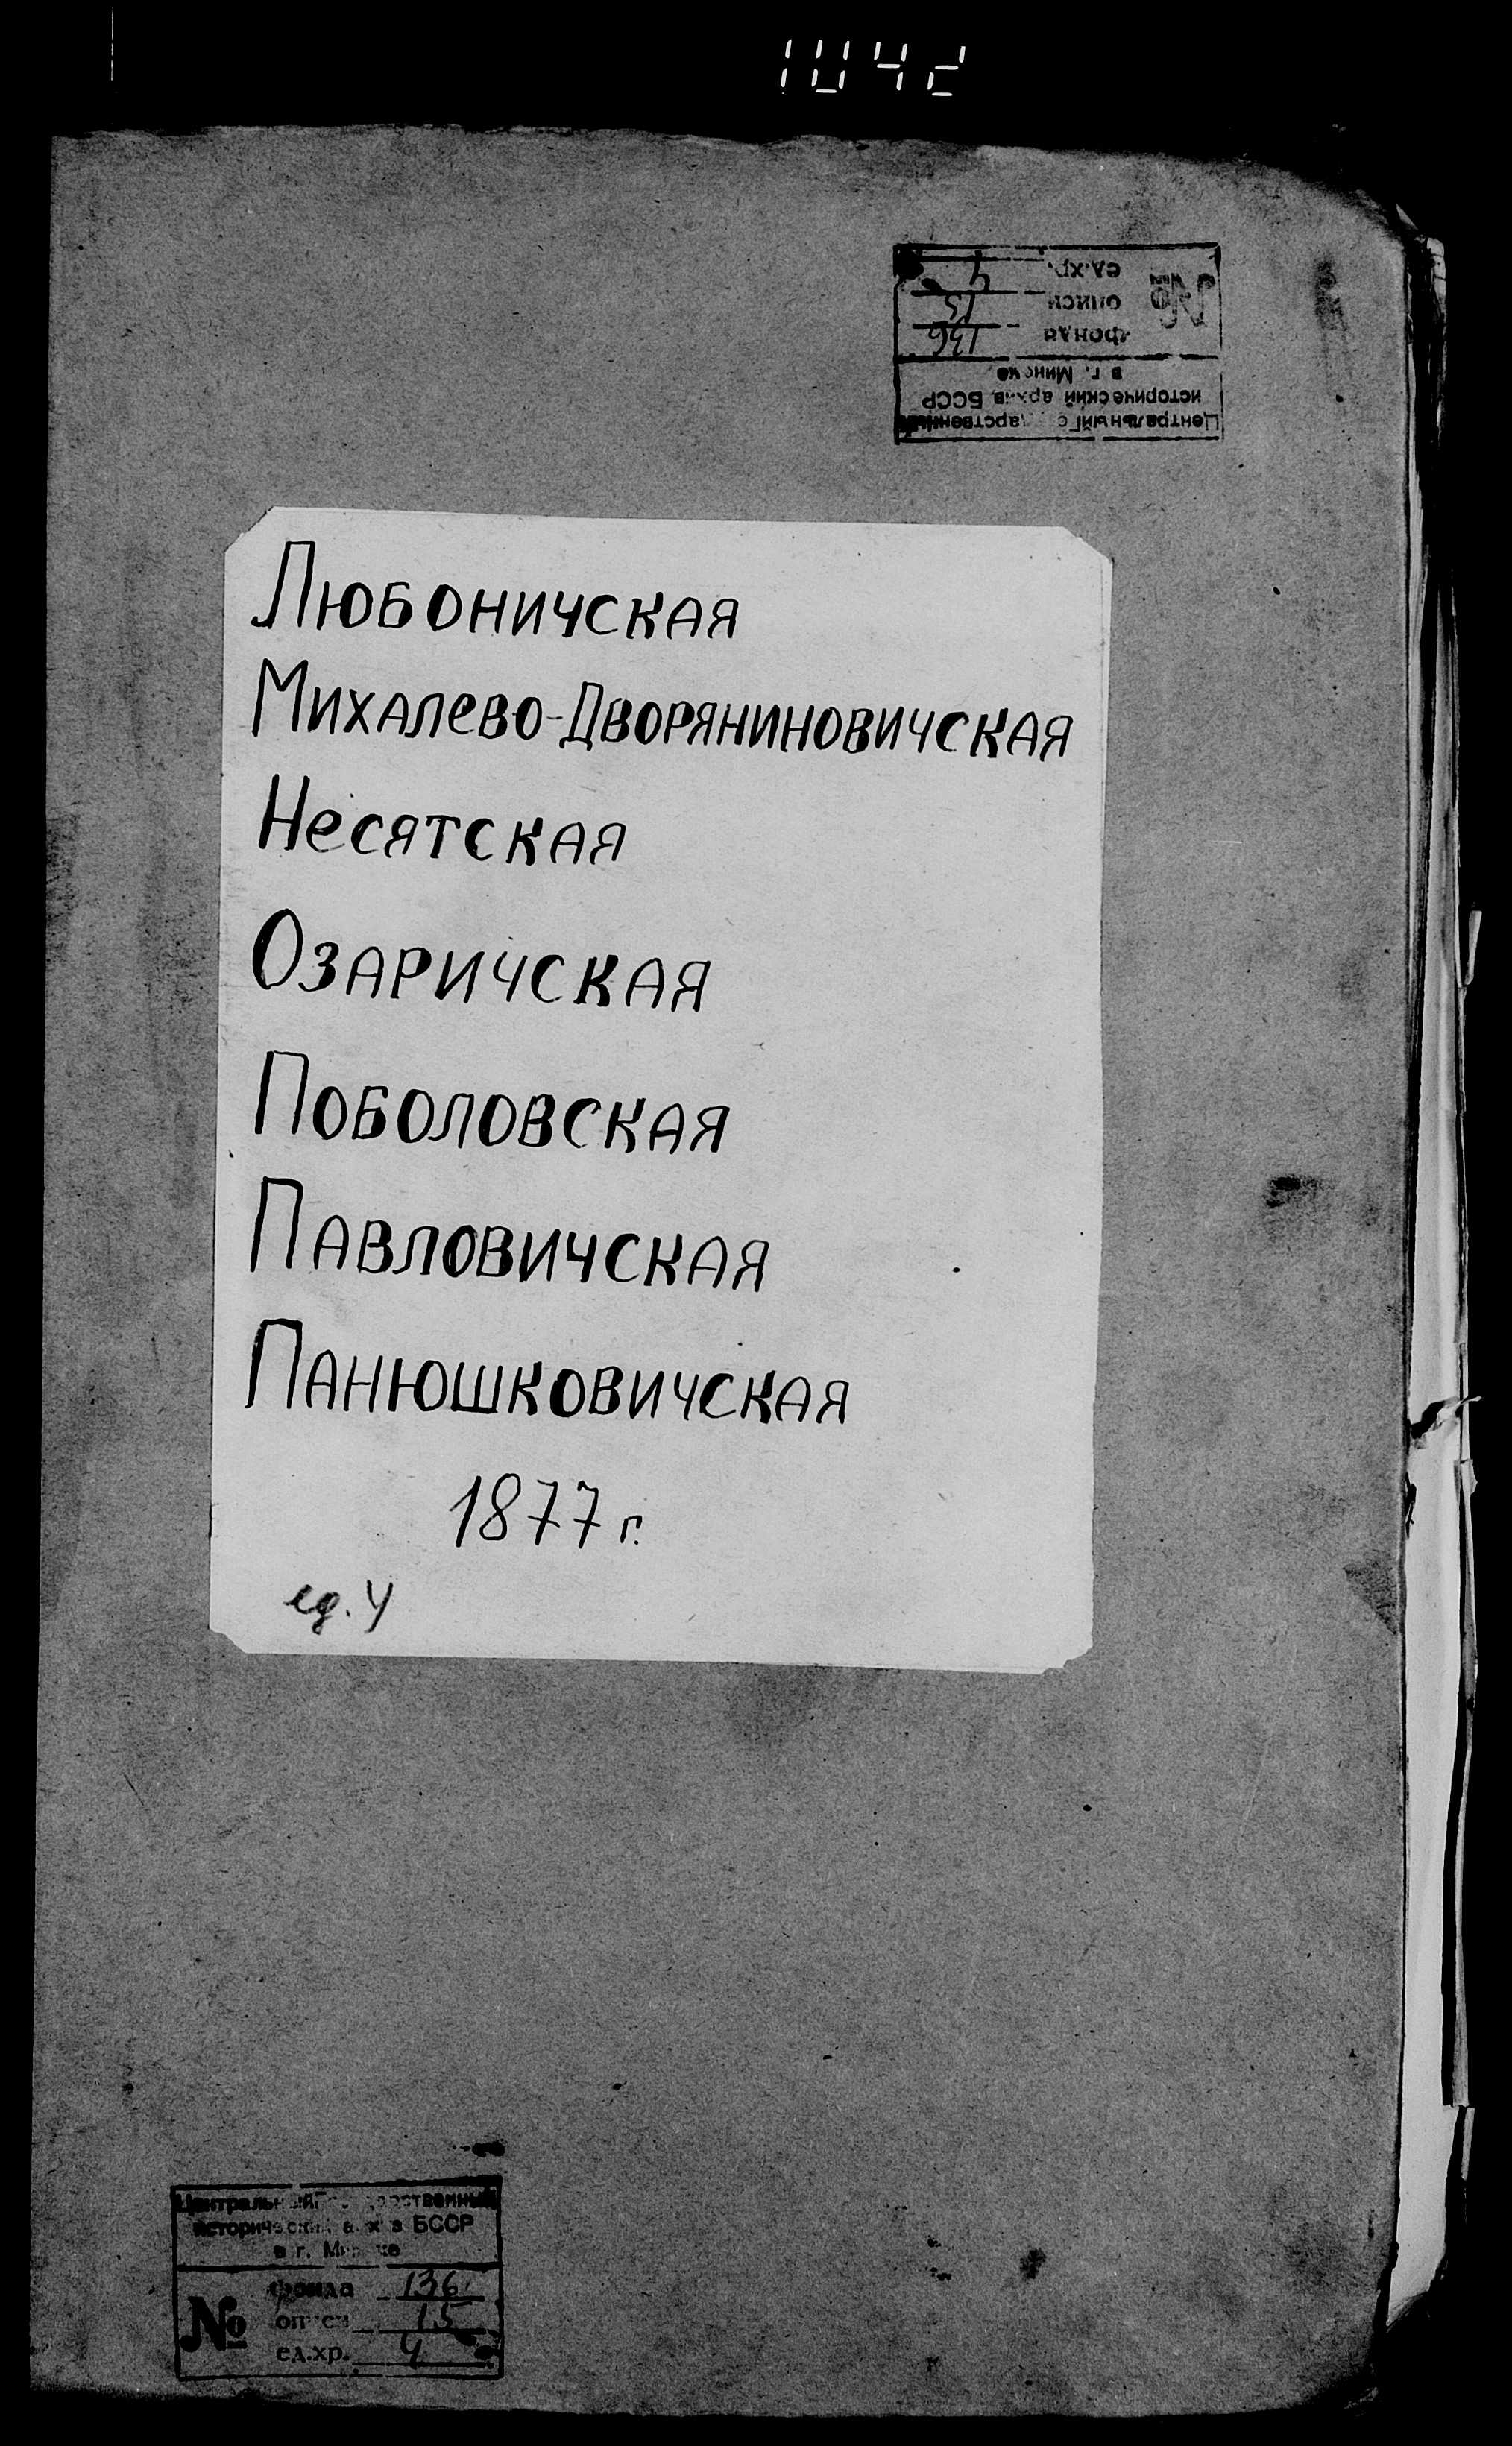 1042
№
фонда 136
описи 15
ед.хр. 4
Центральный Государственный
исторический архив БССР
в г. Минске
Любоничская
Михалево-Дворяниновичская
Несятская
Озаричская
Поболовская
Павловичская
Панюшковичская
1877 г.
ед. 4
Центральный Государственный
исторический архив БССР
в г. Минске
№
фонда 136
описи 15
ед.хр. 4